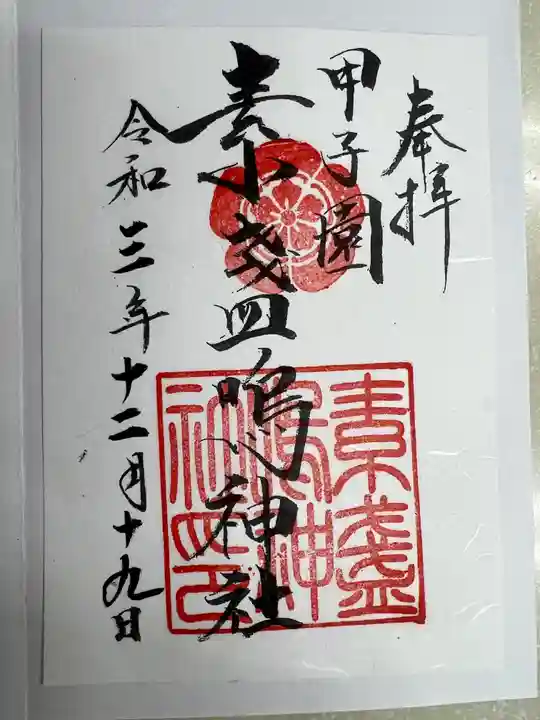 奉拝
甲子園
素盞嗚神社
令和三年十二月十九日
素盞
嗚神
社之印